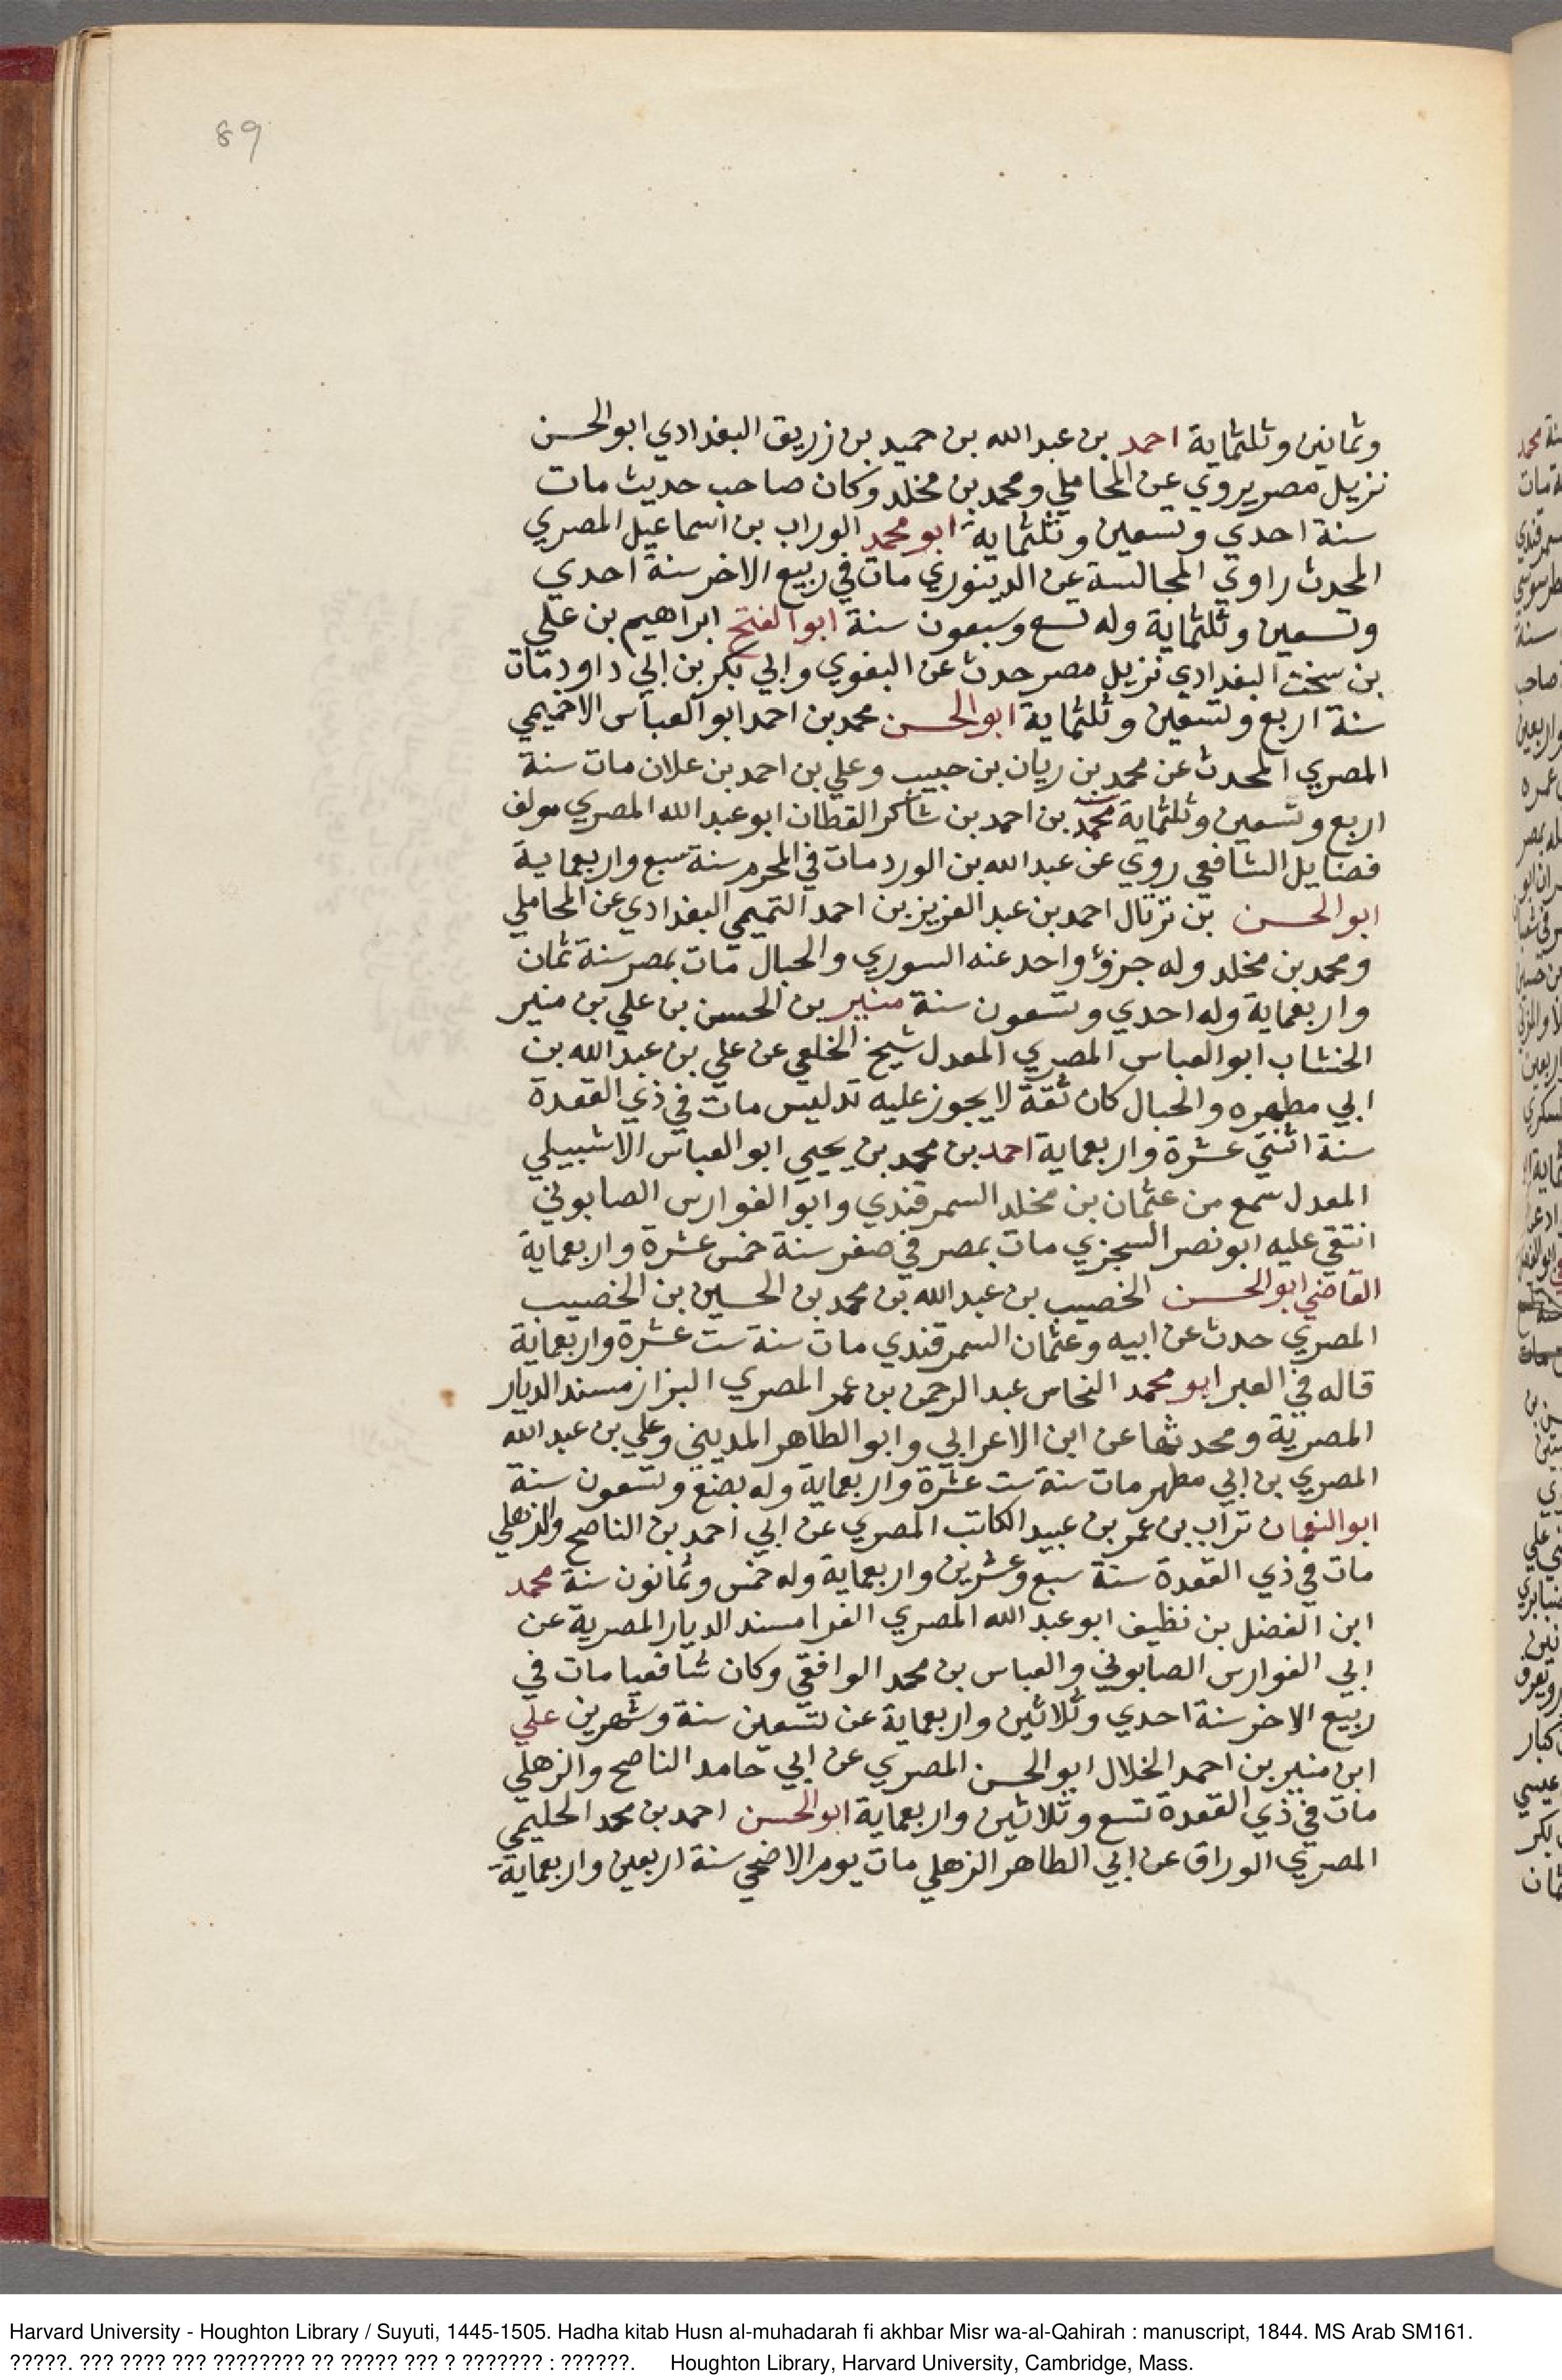 89
وثمانين وثلثماية احمد بن عبد الله بن حميد بن زريق البغدادي ابو الحسن
نزيل مصر يروي عن المحاملي ومحمد بن مخلد وكان صاحب حديث مات
سنة احدي وتسعين وثلثماية ابو محمد الوراب بن اسماعيل المصري
المحدث راوي المجالسة عن الدينوري مات في ربيع الاخر سنة احدي
وتسعين وثلثماية وله تسع وسبعون سنة ابو الفتح ابراهيم بن علي
بن سخت البغدادي نزيل مصر حدث عن البغوي وابي بكر بن ابي داود مات
سنة اربع وتسعين وثلثماية ابو الحسن محمد بن احمد ابو العباس الاخميمي
المصري المحدث عن محمد بن ريان بن حبيب وعلي بن احمد بن علان مات سنة
اربع وتسعين وثلثماية محمد بن احمد بن شاكر القطان ابو عبد الله المصري مولف
فضايل الشافعي روي عن عبد الله بن الورد مات في المحرم سنة سبع واربعماية
ابو الحسن بن ترتال احمد بن عبد العزيز بن احمد التميمي البغدادي عن المحاملي
ومحمد بن مخلد وله جزؤ واحد عنه السوري والحبال مات بمصر سنة ثمان
واربعماية وله احدي وتسعون سنة منير بن الحسن بن علي بن منير
الخشاب ابو العباس المصري المعدل شيخ الخلعي عن علي بن عبد الله بن
ابي مطهره والحبال كان ثقة لا يجوز عليه تدليس مات في ذي القعدة
سنة اثنتي عشرة واربعماية احمد بن محمد بن يحيي ابو العباس الاشبيلي
المعدل سمع من عثمان بن مخلد السمرقندي وابو الفوارس الصابوني
انتقي عليه ابو نصر السجزي مات بمصر في صفر سنة خمس عشرة واربعماية
القاضي ابو الحسن الخصيب بن عبد الله بن محمد بن الحسين بن الخصيب
المصري حدث عن ابيه وعثمان السمرقندي مات سنة ست عشرة واربعماية
قاله في العبر ابو محمد النحاس عبد الرحمن بن عمر المصري البزاز مسند الديار
المصرية ومحدثها عن ابن الاعرابي وابو الطاهر المديني وعلي بن عبد الله
المصري بن ابي مطهر مات سنة ست عشرة واربعماية وله بضع وتسعون سنة
ابو النعمان تراب بن عمر بن عبيد الكاتب المصري عن ابي احمد بن الناصح والذهلي
مات في ذي القعدة سنة سبع وعشرين واربعماية وله خمس وثمانون سنة محمد
ابن الفضل بن نظيف ابو عبد الله المصري الفرا مسند الديار المصرية عن
ابي الفوارس الصابوني والعباس بن محمد الوافقي وكان شافعيا مات في
ربيع الاخر سنة احدي وثلاثين واربعماية عن تسعين سنة وشهرين علي
ابن منير بن احمد الخلال ابو الحسن المصري عن ابي حامد الناصح والزهلي
مات في ذي القعدة تسع وثلاثين واربعماية ابو الحسن احمد بن محمد الحليمي
المصري الوراق عن ابي الطاهر الزهلي مات يوم الاضحي سنة اربعين واربعماية
Harvard University - Houghton Library / Suyuti, 1445-1505. Hadha kitab Husn al-muhadarah fi akhbar Misr wa-al-Qahirah : manuscript, 1844. MS Arab SM161.
?????. ??? ???? ??? ???????? ?? ????? ??? ? ??????? : ??????. Houghton Library, Harvard University, Cambridge, Mass.